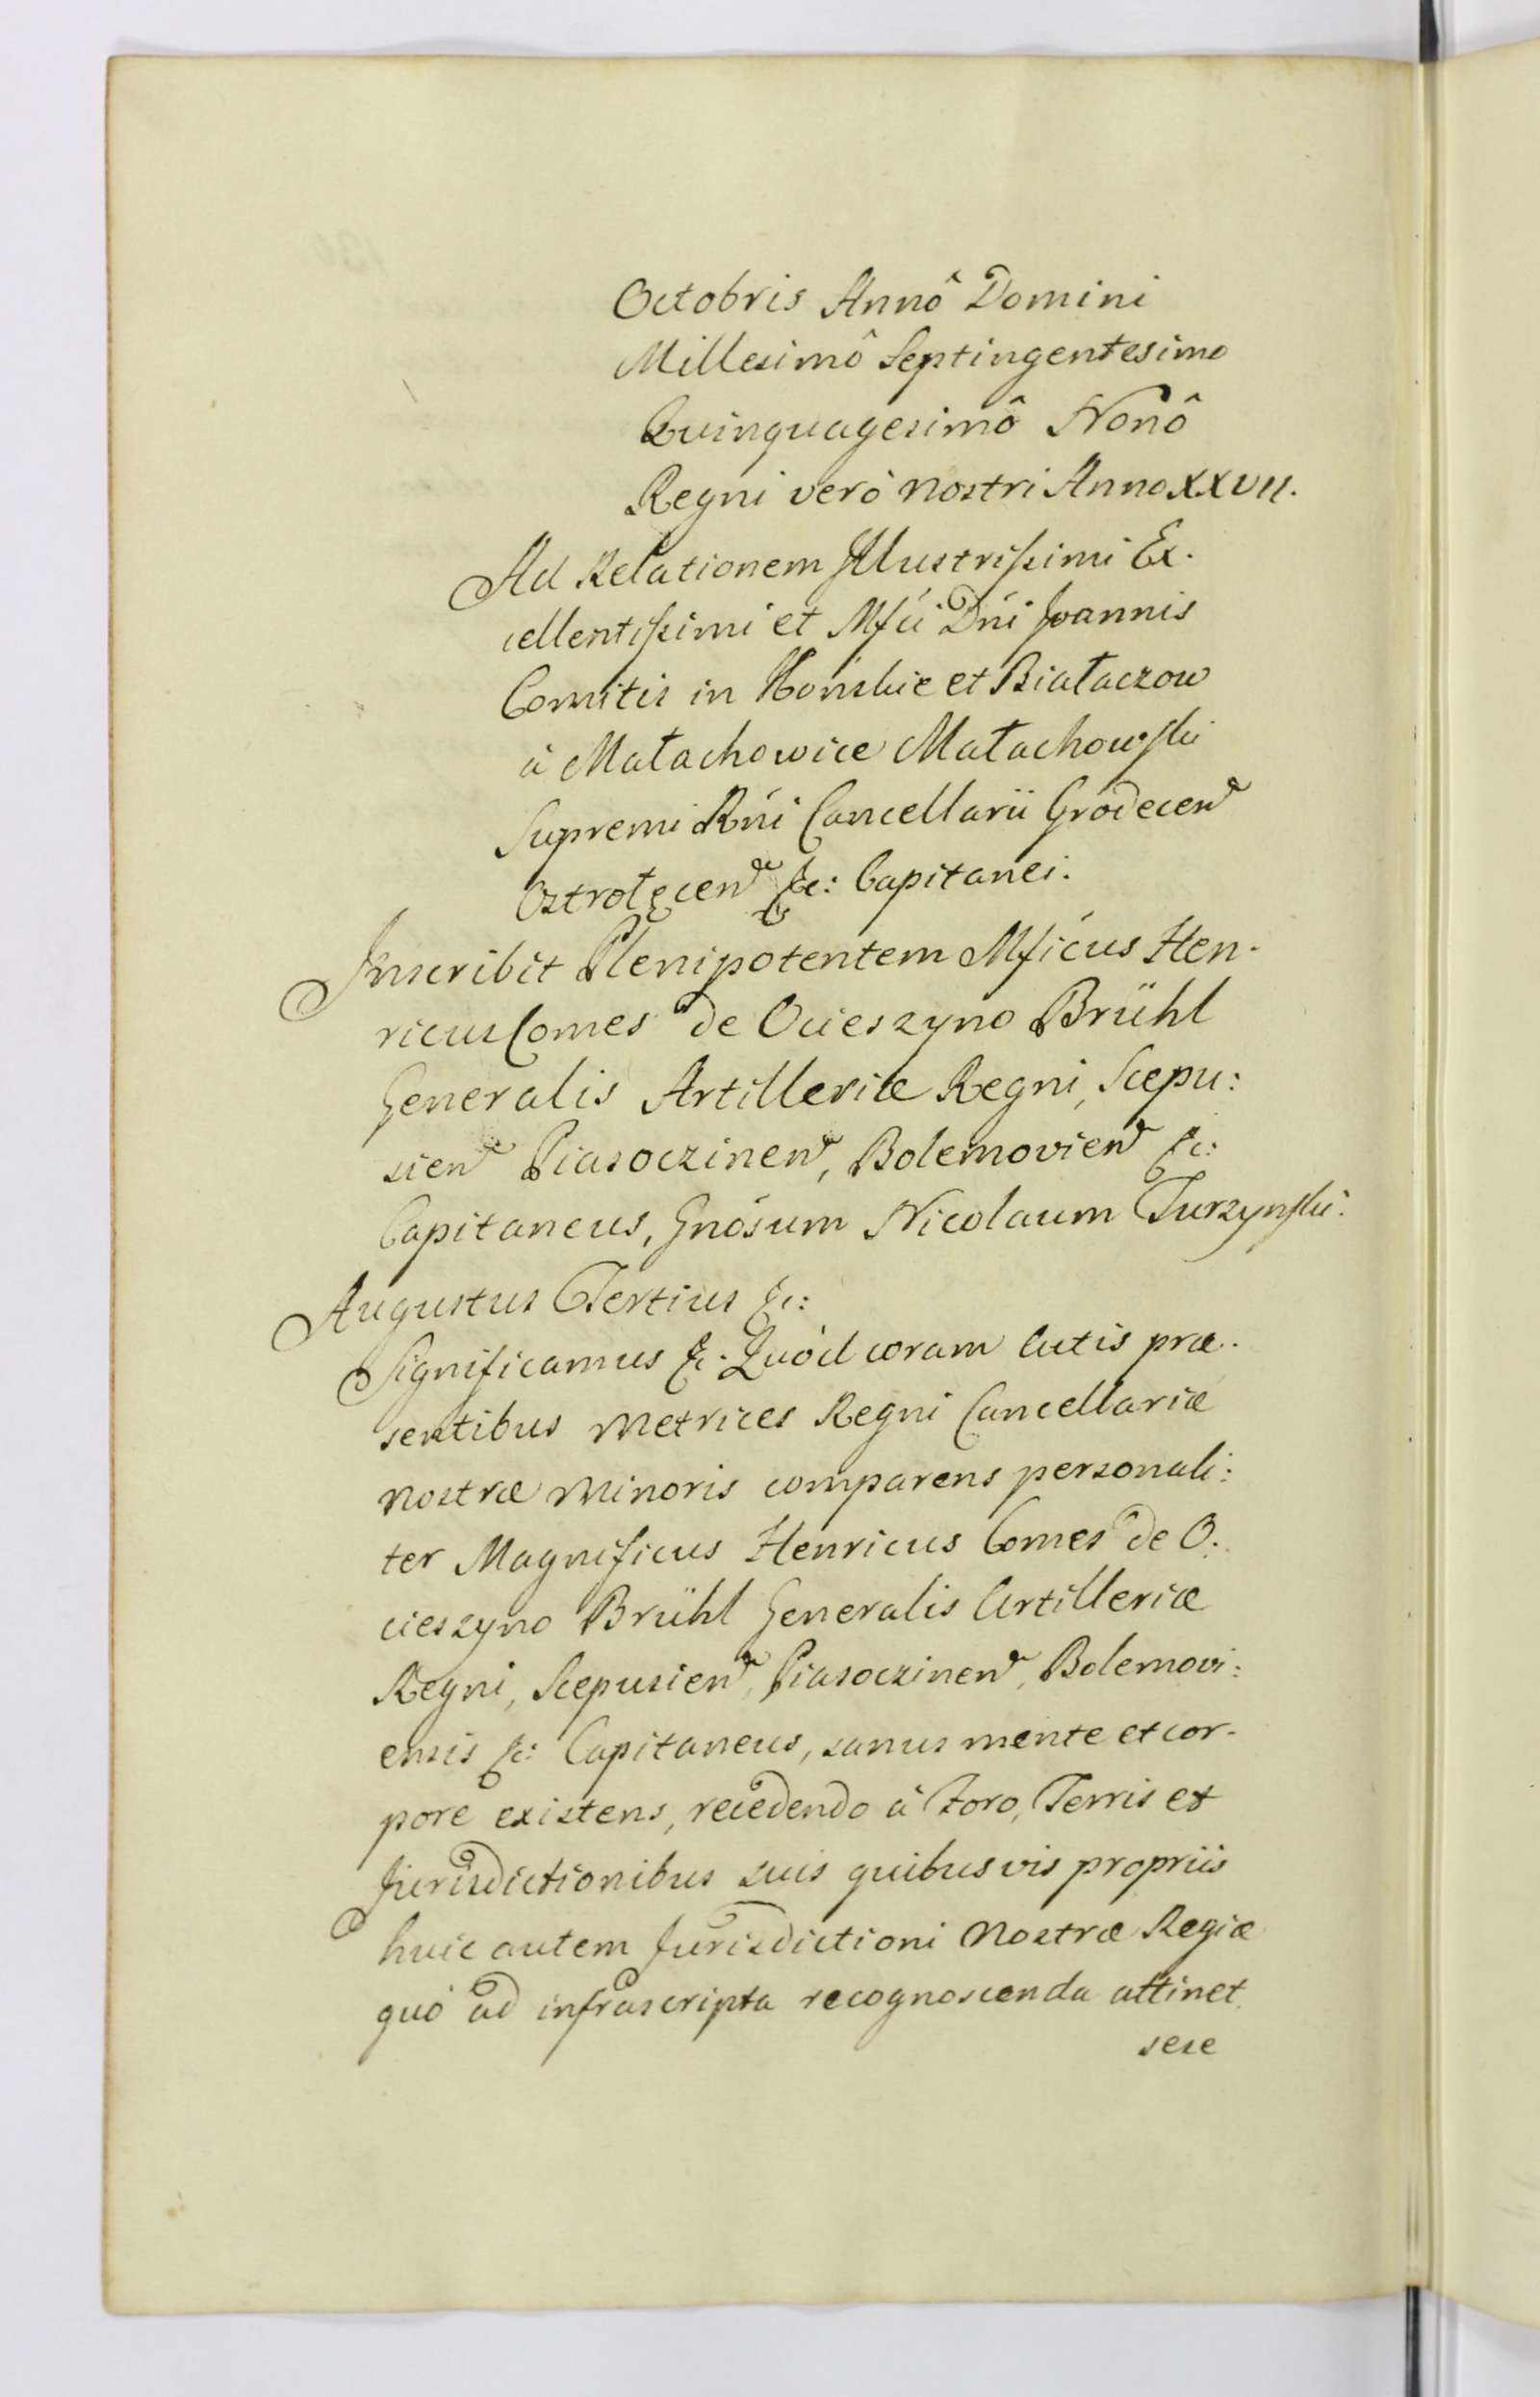 Octobris Annô Domini
Millesimô Septingentesimo
Quinquagesimô Nonô
Regni verò nostri Anno XXVII.
Ad Relationem Illustrissimi Ex-
cellentissimi et Mfci Dńi Joannis
Comitis in Końskie et Białaczow
à Małachowice Małachowski
Supremi Rńi Cancellarii Grodecen
Ostrołęcen &c: Capitanei.
Inscribit Plenipotentem Mficus Hen-
ricus Comes de Ocieszyno Brühl
Generalis Artilleriæ Regni, Scepu:
sien Piasoczinen, Bolemovien &c:
Capitaneus, Gnosum Nicolaum Turzynski.
Augustus Tertius &c:
Significamus &c. Quòd coram Actis præ-
sentibus Metrices Regni Cancellariæ
Nostræ Minoris comparens personali:
ter Magnificus Henricus Comes de O-
cieszyno Brühl Generalis Artilleriæ
Regni, Scepusien, Piasoczinen, Bolemovi:
ensis &c: Capitaneus, sanus mente et cor-
pore existens, recedendo à Foro, Terris et
Jurisdictionibus suis quibusvis propriis
huic autem Jurisdictioni Nostræ Regiæ
quó ad infrascripta recognoscenda attinet
sese